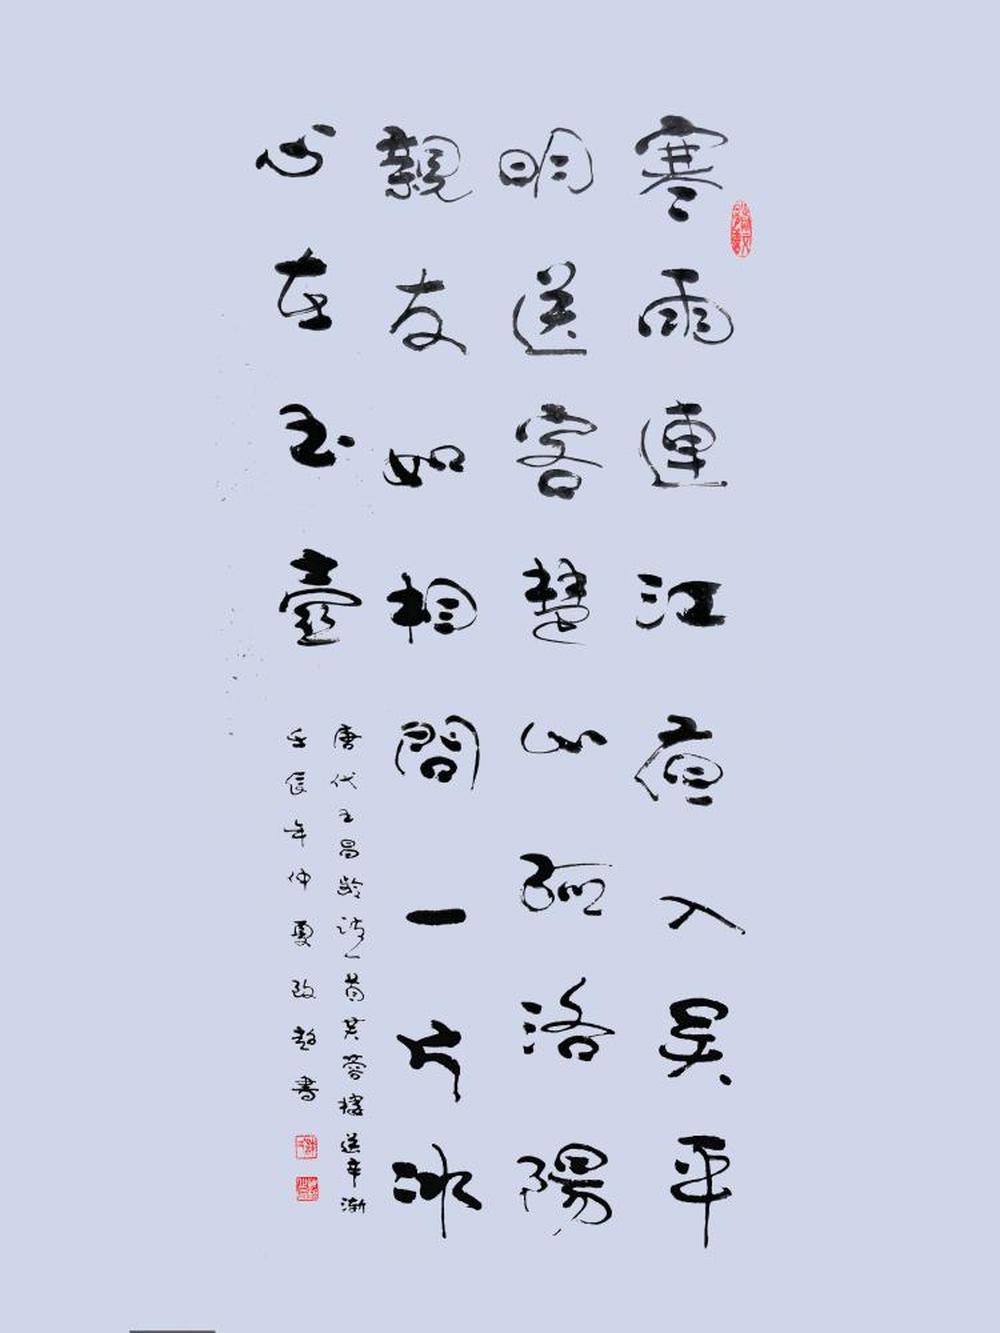 寒雨連江夜入吴平
明送客楚山孤洛陽
親友如相間一片冰
心在玉壺
唐代王昌龄诗一首芙蓉楼送辛渐
壬辰年仲夏 書